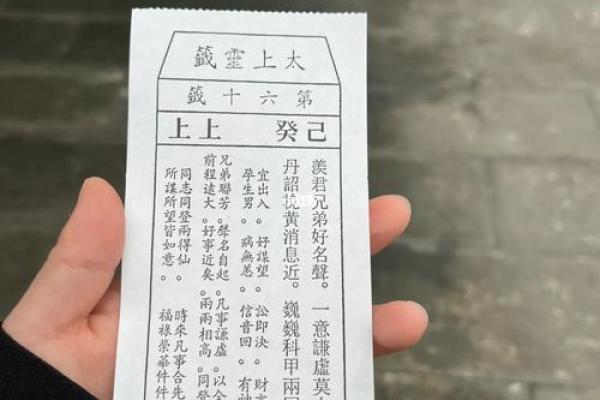 太上靈籤
第六十籤
己癸 上上
羨君兄弟好名聲。一意謙虛莫
丹詔槐黃消息近。巍巍科甲兩
宜出入。好謀望。訟即決。財
孕生男。病無恙。信音回。有神
兄弟聯芳。聲名自起。凡事謙虛。以全
前程遠大。好事近矣。兩兩相高。同登
同志同登兩得仙。時來凡事合先
所謀所望皆如意。福祿榮華件件